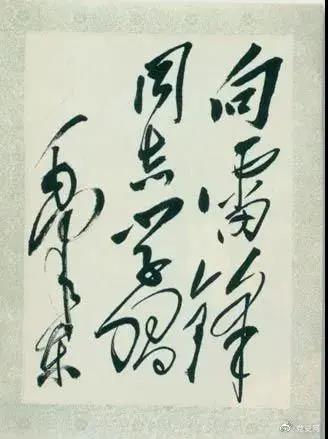 向雷锋
同志学习
毛泽东
党史网